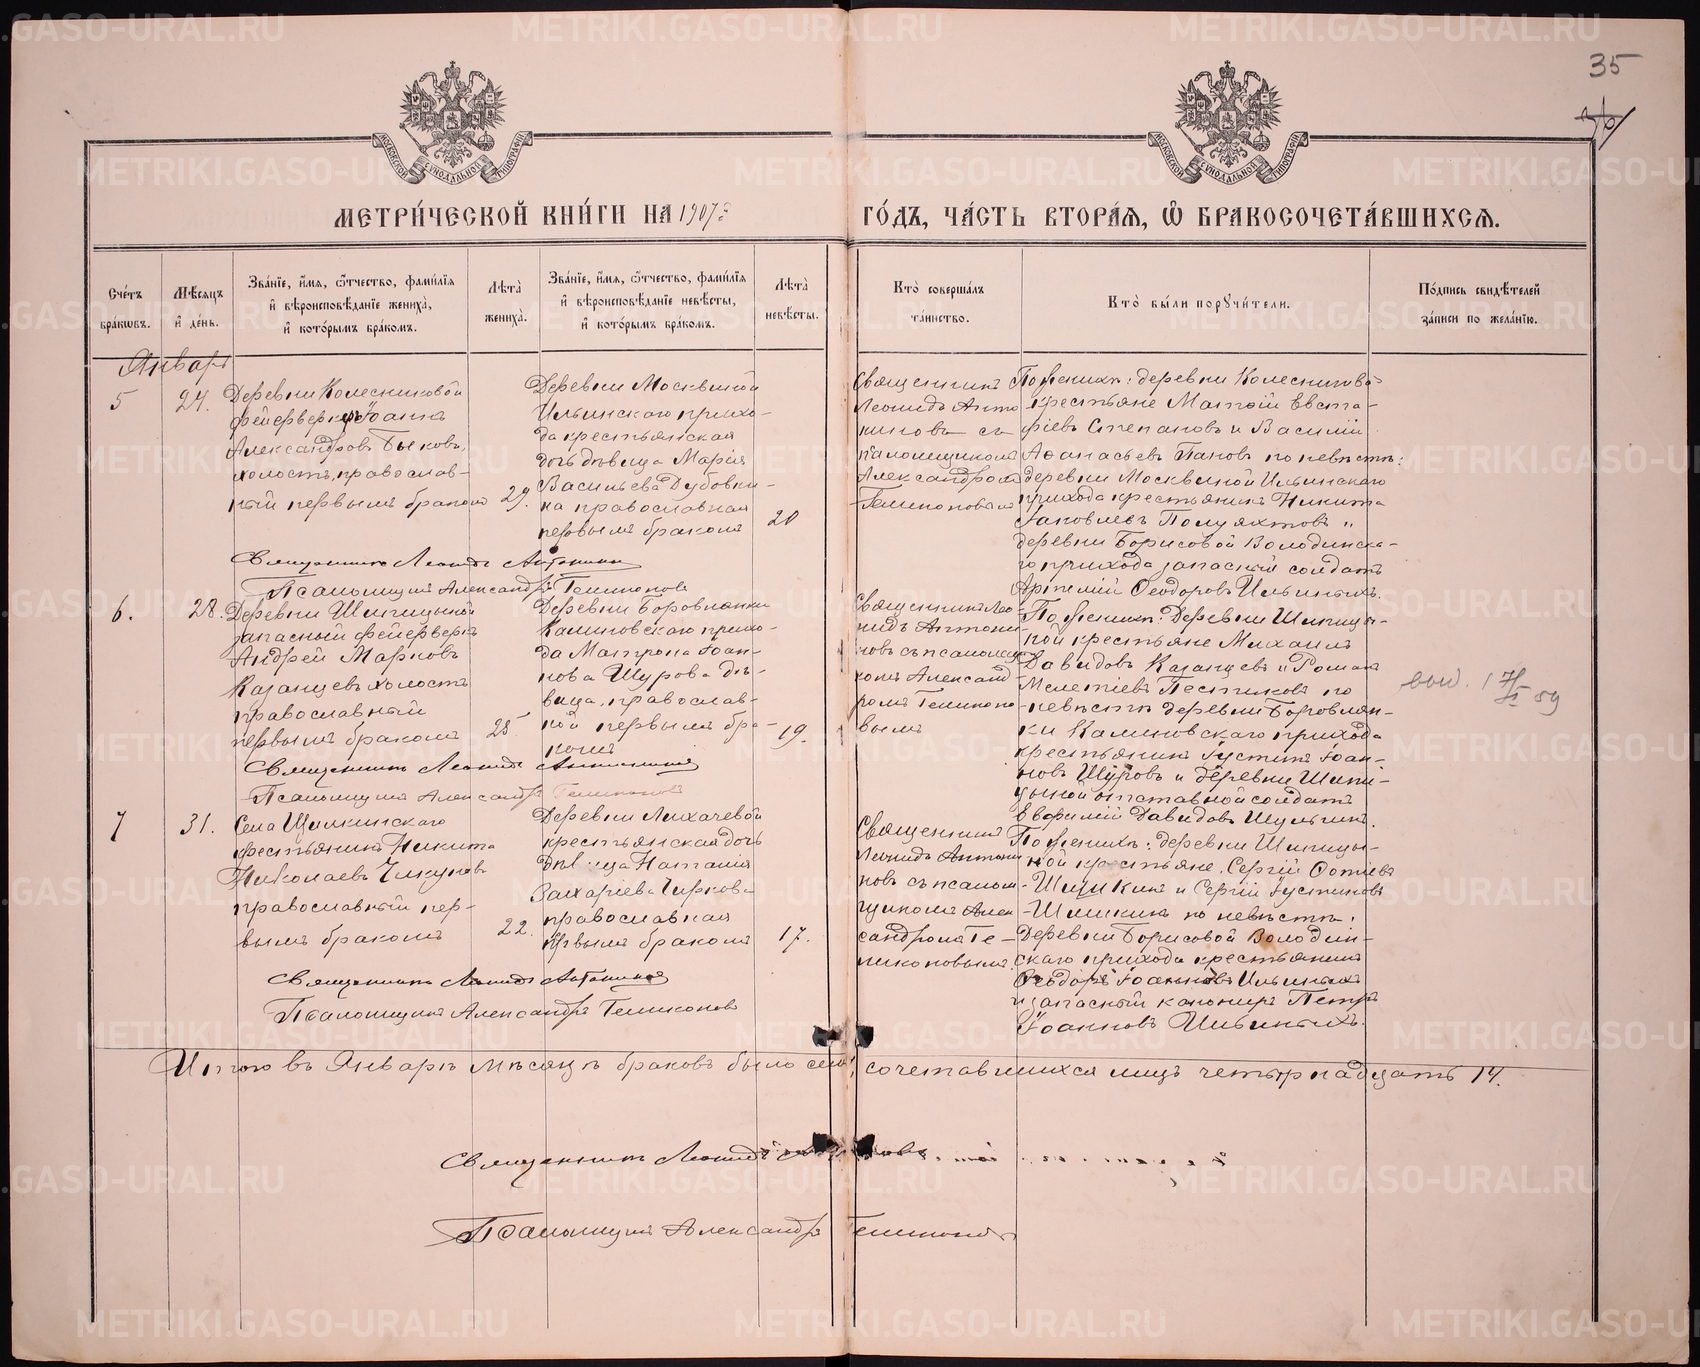 35
МЕТРИ́ЧЕСКОЙ КНИ́ГИ НА 1907 й
ГО́ДЪ, ЧА́СТЬ ВТОРА́Я, Ѡ҆ БРАКОСОЧЕТА́ВШИХСЯ.
МОСКОВСКОЙ СѴНОДАЛЬНОЙ ТИПОГРАФІИ
МОСКОВСКОЙ СѴНОДАЛЬНОЙ ТИПОГРАФІИ
Сче́тъ бра́кѡвъ.
Мѣ́сяцъ и҆ де́нь.
Зва́нїе, и҆́мя, ѻ҆́тчество, фами́лїя
и҆ вѣроисповѣ́данїе жениха̀,
и҆ кото́рымъ бра́комъ.
Лѣта̀ жениха̀.
Зва́нїе, и҆́мя, ѻ҆́тчество, фами́лїя
и҆ вѣроисповѣ́данїе невѣ́сты,
и҆ кото́рымъ бра́комъ.
Лѣта̀ невѣ́сты.
Кто̀ соверша́лъ та́инство.
Кто̀ бы́ли поручи́тели.
По́дпись свидѣ́телей за́писи по жела́нїю.
Январь
5
24.
Деревни Колесниковой
фейерверкеръ Іоаннъ
Александровъ Быковъ,
холостъ, православ-
ный первымъ бракомъ
29.
Деревни Москвиной
Ильинскаго прихо-
да крестьянская
дочь дѣвица Марія
Васильева Дубовки-
на православная
первымъ бракомъ
20
Священникъ
Леонидъ Анто
ниновъ съ
псаломщикомъ
Александромъ
Геликоновымъ
По женихѣ: деревни Колесниково-
крестьяне Матѳій Евста-
фіевъ Степановъ и Василій
Аѳанасьевъ Пановъ по невѣстѣ:
деревни Москвиной Ильинскаго
прихода крестьянинъ Никита
Іаковлевъ Полуяхтовъ и
деревни Борисовой Володинска-
го прихода запасный солдатъ
Артемій Ѳеодоровъ Ильиныхъ.
Священникъ Леонидъ Антониновъ
Псаломщикъ Александръ Геликоновъ
6.
28.
Деревни Шипицыной
запасный фейерверк
Андрей Марковъ
Казанцевъ холостъ
православный
первымъ бракомъ
25
Деревни Боровлянки
Калиновскаго прихо-
да Матрона Іоан-
нова Щурова дѣ-
вица, православ-
ной первымъ бра-
комъ
19.
Священникъ Лео-
нидъ Антони-
новъ съ псаломщи
комъ Александ-
ромъ Геликоно-
вымъ
По женихѣ: Деревни Шипицы-
ной крестьяне Михаилъ
Давидовъ Казанцевъ и Романъ
Мелетіевъ Пестиковъ по
невѣстѣ деревни Боровлян-
ки Калиновскаго прихода
крестьянинъ Іустинъ Іоан-
новъ Щуровъ и деревни Шипи-
цыной отставной солдатъ
Евфимій Давидовъ Шульгинъ.
Священникъ Леонидъ Антониновъ
Псаломщикъ Александръ Геликоновъ
7
31.
Села Щилкинскаго
крестьянинъ Никита
Николаевъ Чикуновъ
православный пер-
вымъ бракомъ
22.
Деревни Лихачевой
крестьянская дочь
дѣвица Наталія
Захаріева Чиркова
православная
первымъ бракомъ
17.
Священникъ
Леонидъ Антони
новъ съ псалом-
щикомъ Алек
сандромъ Ге-
ликоновымъ.
По женихѣ: деревни Шипицы-
ной крестьяне, Сергій Сотіевъ
Шишкинъ и Сергій Іустиновъ
Шишкинъ по невѣстѣ:
Деревни Борисовой Володин-
скаго прихода крестьянинъ
Ѳеодоръ Іоанновъ Ильиныхъ
и запасный канониръ Петръ
Іоанновъ Ильиныхъ.
Священникъ Леонидъ Антониновъ
Псаломщикъ Александръ Геликоновъ
Итого въ Январѣ мѣсяцѣ браковъ было семь, сочетавшихся лицъ четырнадцать 14.
Священникъ Леонидъ Антониновъ
Псаломщикъ Александръ Геликоновъ
METRIKI.GASO-URAL.RU